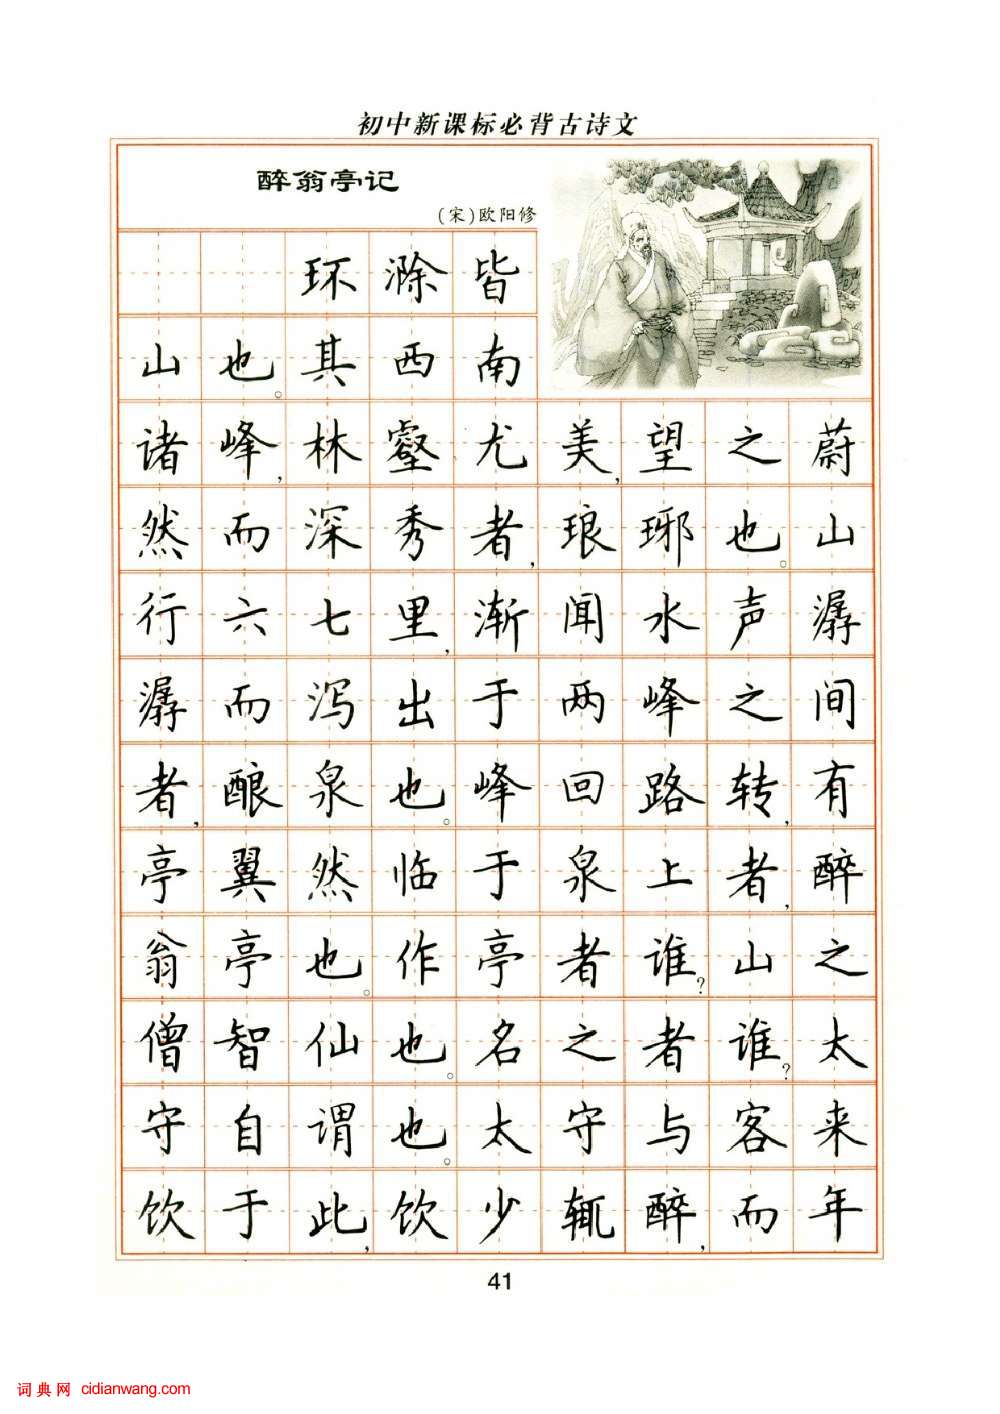 初中新课标必背古诗文
醉翁亭记
(宋)欧阳修
环滁皆
山也。其西南
诸峰，林壑尤美，望之蔚
然而深秀者，琅琊也。山
行六七里，渐闻水声潺
潺而泻出于两峰之间
者，酿泉也。峰回路转，有
亭翼然临于泉上者，醉
翁亭也。作亭者谁？山之
僧智仙也。名之者谁？太
守自谓也。太守与客来
饮于此，饮少辄醉，而年
41
词典网 cidianwang.com